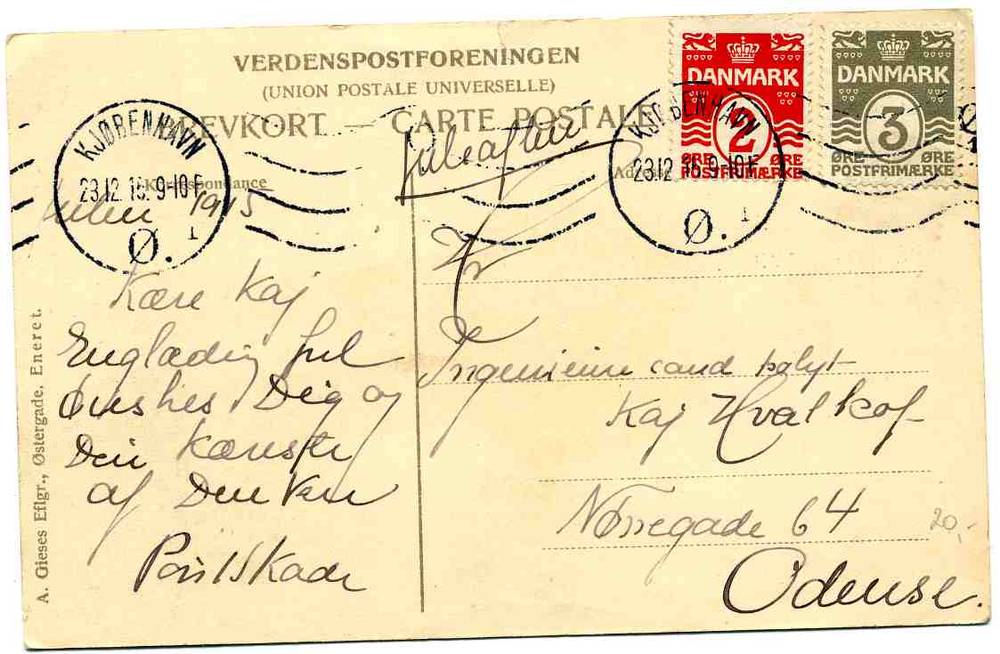 VERDENSPOSTFORENINGEN
(UNION POSTALE UNIVERSELLE)
BREVKORT — CARTE POSTALE
Juleaften
DANMARK
2
ØRE ØRE
POSTFRIMÆRKE
DANMARK
3
ØRE ØRE
POSTFRIMÆRKE
KJØBENHAVN
23.12.15. 9-10 F.
Ø. 1
KJØBENHAVN
23.12 15. 9-10 F.
Ø. 1
Korrespondance
Julen 1915
Kære Kaj
En glædelig Jul
ønskes Dig og
Din Kæreste
af Din Ven
Hr
Ingeniør cand polyt
Kaj Hvalkof
Nørregade 64
Odense.
20,-
A. Gieses Eflgr., Østergade. Eneret.